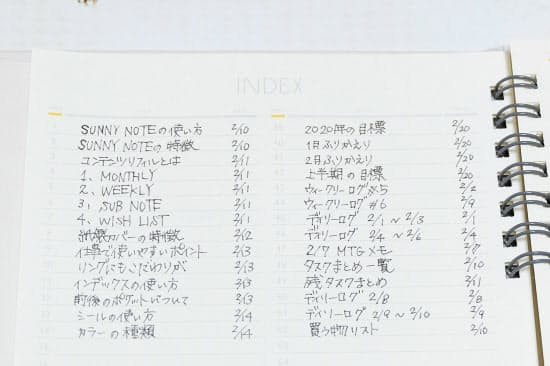 INDEX
SUNNY NOTEの使い方 2/10
SUNNY NOTEの特徴 2/10
コンテンツリフィルとは 2/11
1、MONTHLY 2/11
2、WEEKLY 2/11
3、SUB NOTE 2/11
4、WISH LIST 2/11
紙製カバーの特徴 2/12
仕事で使いやすいポイント 2/13
リングにもこだわりが 2/13
インデックスの使い方 2/13
前後のポケットについて 2/13
シールの使い方 2/14
カラーの種類 2/14
2020年の目標 2/20
1月ふりかえり 2/20
2月ふりかえり 2/20
上半期の目標 2/20
ウィークリーログ#5 2/2
ウィークリーログ#6 2/9
デイリーログ 2/1~2/3 2/1
デイリーログ 2/4~2/6 2/4
2/7 MTGメモ 2/7
タスクまとめ一覧 2/10
残タスクまとめ 2/11
デイリーログ 2/8 2/8
デイリーログ 2/9~2/10 2/9
買う物リスト 2/10